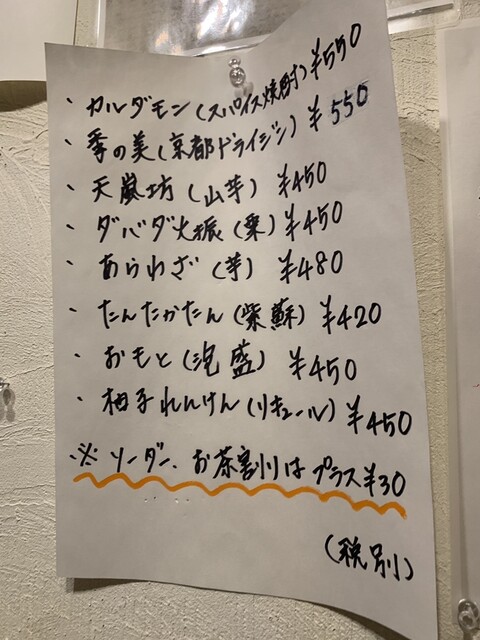 ・カルダモン(スパイス焼酎)¥550
・季の美(京都ドライジン)¥550
・天嵐坊(山芋)¥450
・ダバダ火振(栗)¥450
・あらわざ(芋)¥480
・たんたかたん(紫蘇)¥420
・おもと(泡盛)¥450
・柚子れんけん(リキュール)¥450
※ソーダー、お茶割りはプラス¥30
(税別)